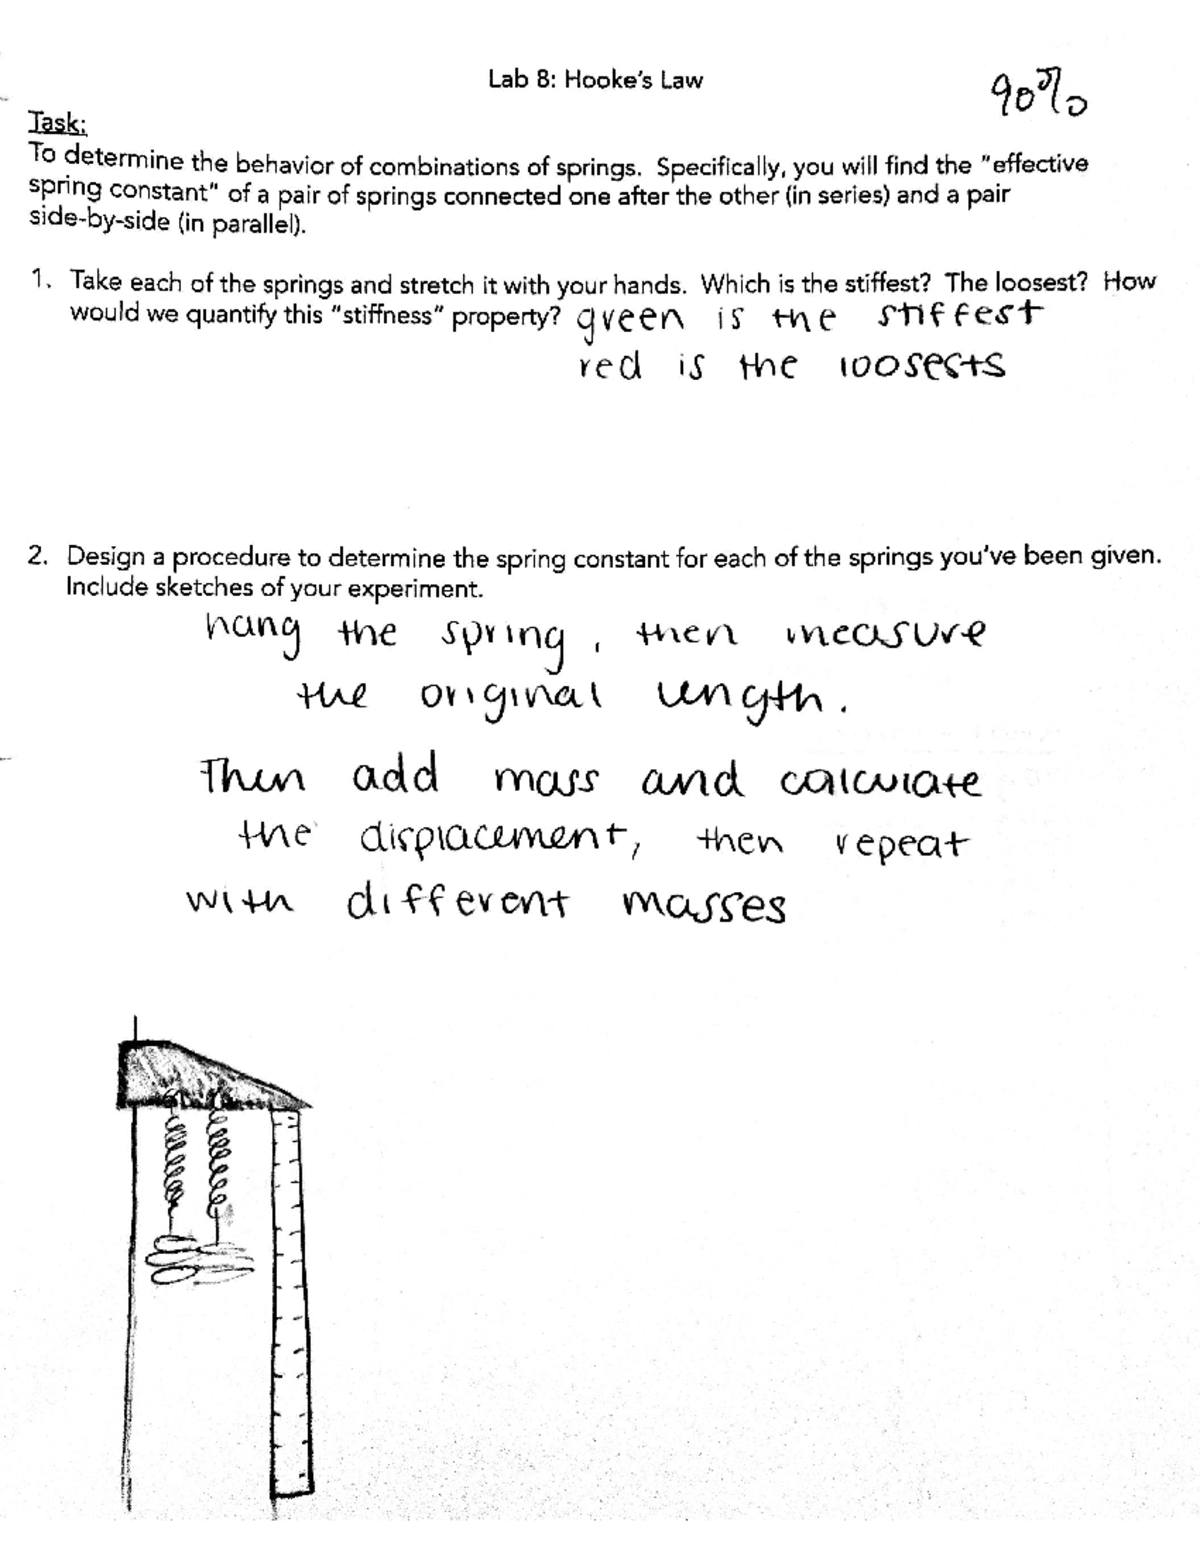 Lab 8: Hooke's Law
90%
Task:
To determine the behavior of combinations of springs. Specifically, you will find the "effective
spring constant" of a pair of springs connected one after the other (in series) and a pair
side-by-side (in parallel).
1. Take each of the springs and stretch it with your hands. Which is the stiffest? The loosest? How
would we quantify this "stiffness" property? green is the stiffest
red is the loosests
2. Design a procedure to determine the spring constant for each of the springs you've been given.
Include sketches of your experiment.
hang the spring, then measure
the original length.
Then add mass and calculate
the displacement, then repeat
with different masses